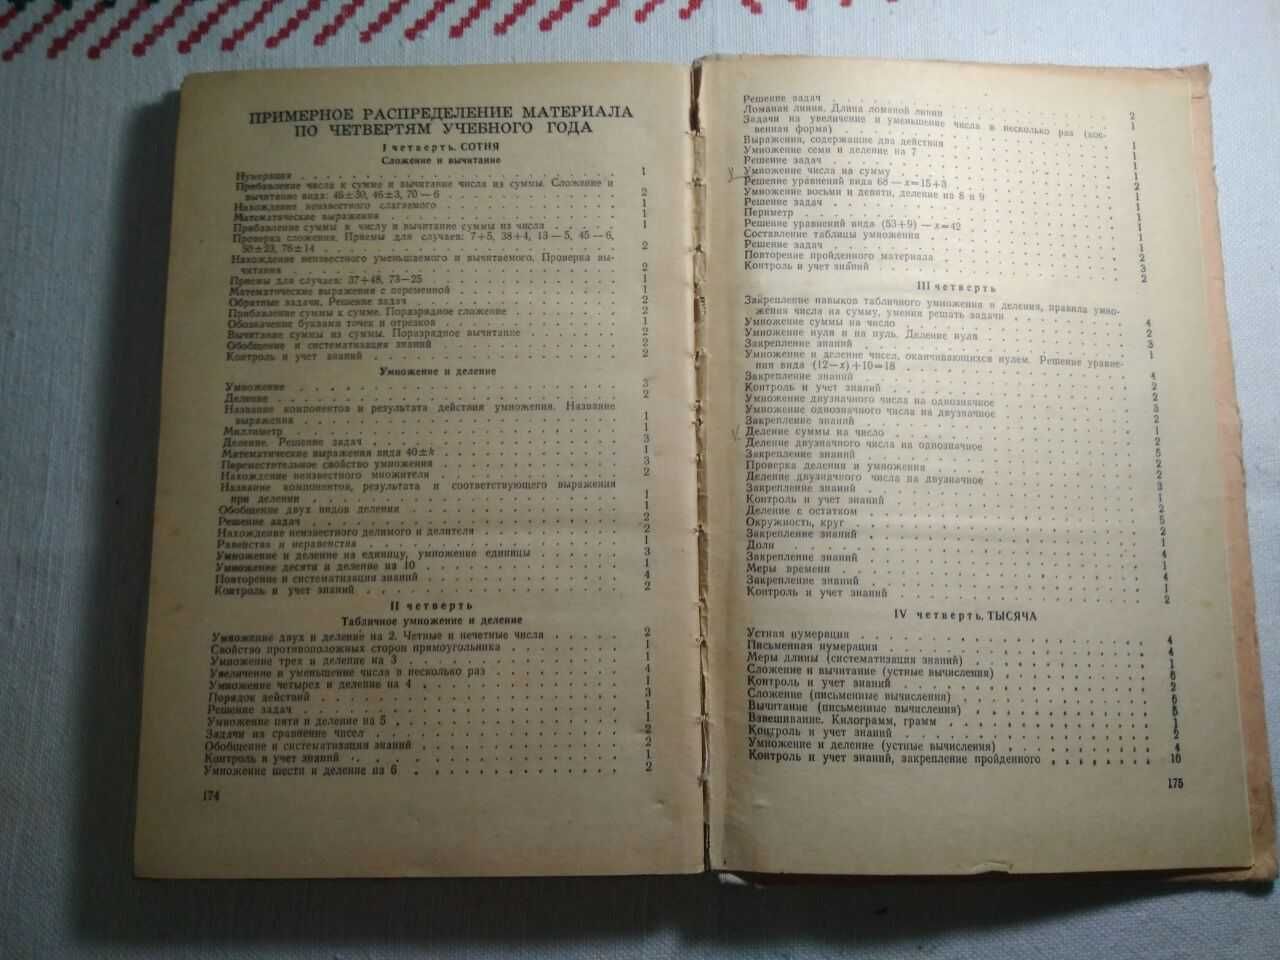 ПРИМЕРНОЕ РАСПРЕДЕЛЕНИЕ МАТЕРИАЛА
ПО ЧЕТВЕРТЯМ УЧЕБНОГО ГОДА
I четверть. СОТНЯ
Сложение и вычитание
Нумерация 1
Прибавление числа к сумме и вычитание числа из суммы. Сложение и
вычитание вида: 46±30, 46±3, 70—6 2
Нахождение неизвестного слагаемого 1
Математические выражения 1
Прибавление суммы к числу и вычитание суммы из числа 1
Проверка сложения. Приемы для случаев: 7+5, 38+4, 13—5, 45—6,
38±23, 76±14 2
Нахождение неизвестного уменьшаемого и вычитаемого. Проверка вы-
читания 2
Приемы для случаев: 37+48, 73—25 1
Математические выражения с переменной 1
Обратные задачи. Решение задач 2
Прибавление суммы к сумме. Поразрядное сложение 2
Обозначение буквами точек и отрезков 1
Вычитание суммы из суммы. Поразрядное вычитание 2
Обобщение и систематизация знаний 2
Контроль и учет знаний 2
Умножение и деление
Умножение 3
Деление 2
Название компонентов и результата действия умножения. Название
выражения 1
Миллиметр 1
Деление. Решение задач 3
Математические выражения вида 40±k 1
Переместительное свойство умножения 3
Нахождение неизвестного множителя 2
Название компонентов, результата и соответствующего выражения
при делении 1
Обобщение двух видов деления 1
Решение задач 2
Нахождение неизвестного делимого и делителя 2
Равенства и неравенства 1
Умножение и деление на единицу, умножение единицы 3
Умножение десяти и деление на 10 1
Повторение и систематизация знаний 4
Контроль и учет знаний 2
II четверть
Табличное умножение и деление
Умножение двух и деление на 2. Четные и нечетные числа 2
Свойство противоположных сторон прямоугольника 1
Умножение трех и деление на 3 1
Увеличение и уменьшение числа в несколько раз 4
Умножение четырех и деление на 4 1
Порядок действий 3
Решение задач 1
Умножение пяти и деление на 5 1
Задачи на сравнение чисел 2
Обобщение и систематизация знаний 2
Контроль и учет знаний 1
Умножение шести и деление на 6 2
174
Решение задач 2
Ломаная линия. Длина ломаной линии 1
Задачи на увеличение и уменьшение числа в несколько раз (кос-
венная форма) 1
Выражения, содержащие два действия 1
Умножение семи и деление на 7 1
Решение задач
Умножение числа на сумму
Решение уравнений вида 68—x=15+3
Умножение восьми и девяти, деление на 8 и 9
Решение задач
Периметр
Решение уравнений вида (53+9)—x=42
Составление таблицы умножения
Решение задач
Повторение пройденного материала
Контроль и учет знаний 2
III четверть
Закрепление навыков табличного умножения и деления, правила умно-
жения числа на сумму, умения решать задачи 4
Умножение суммы на число 2
Умножение нуля и на нуль. Деление нуля 3
Закрепление знаний 1
Умножение и деление чисел, оканчивающихся нулем. Решение уравне-
ния вида (12—x)+10=18 4
Закрепление знаний 2
Контроль и учет знаний 2
Умножение двузначного числа на однозначное 3
Умножение однозначного числа на двузначное 2
Закрепление знаний 1
Деление суммы на число 2
Деление двузначного числа на однозначное 5
Закрепление знаний 2
Проверка деления и умножения 2
Деление двузначного числа на двузначное 3
Закрепление знаний 1
Контроль и учет знаний 2
Деление с остатком 5
Окружность, круг 2
Закрепление знаний 1
Доли 4
Закрепление знаний 1
Меры времени 4
Закрепление знаний 1
Контроль и учет знаний 2
IV четверть. ТЫСЯЧА
Устная нумерация 4
Письменная нумерация 4
Меры длины (систематизация знаний) 1
Сложение и вычитание (устные вычисления) 6
Контроль и учет знаний 2
Сложение (письменные вычисления) 6
Вычитание (письменные вычисления)
Взвешивание. Килограмм, грамм 1
Контроль и учет знаний 2
Умножение и деление (устные вычисления) 4
Контроль и учет знаний, закрепление пройденного 10
175